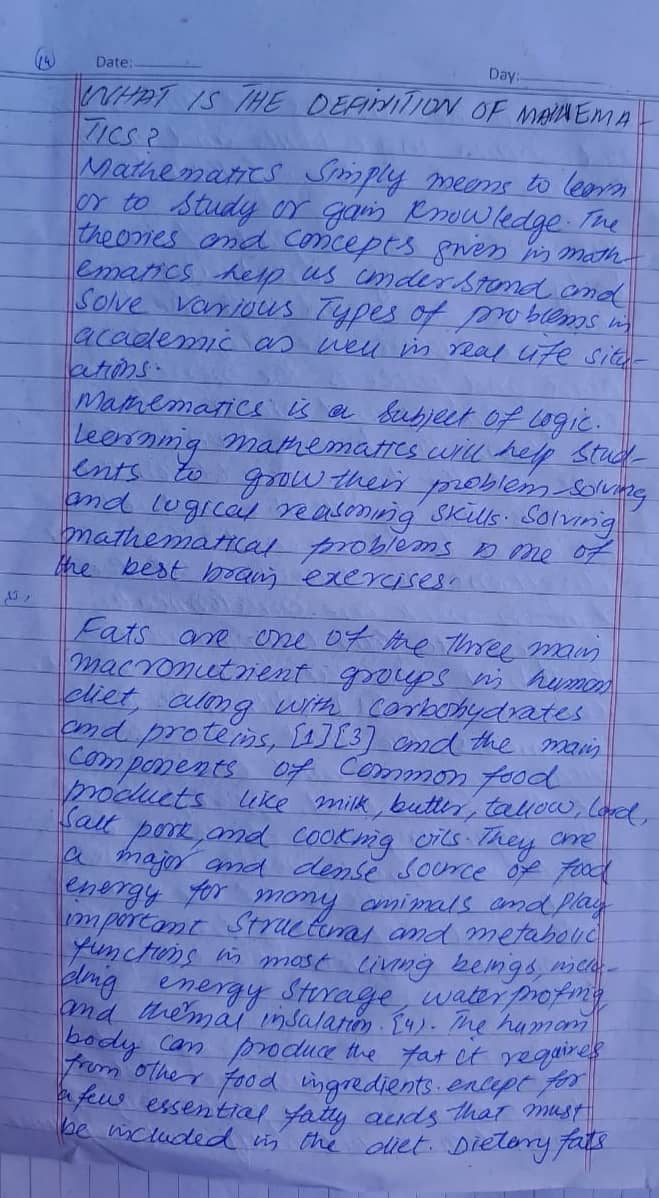 (14) Date: Day:
WHAT IS THE DEFINITION OF MATHEMA-
TICS?
Mathematics Simply means to learn
or to Study or gain Knowledge. The
theories and concepts given in math-
ematics help us understand and
Solve various Types of problems in
academic as well in real life situ-
ations.
Mathematics is a Subject of logic.
Learning mathematics will help Stud-
ents to grow their problem-solving
and logical reasoning Skills. Solving
mathematical problems is one of
the best brain exercises.
Fats are one of the Three main
macronutrient groups in human
diet, along with carbohydrates
and proteins, [1][3] and the main
Components of Common food
products like milk, butter, tallow, lard,
Salt pork, and cooking oils. They are
a major and dense Source of food
energy for many animals and play
important Structural and metabolic
functions in most living beings, inclu-
ding energy Storage, waterprofing,
and thermal insulation. [4]. The human
body can produce the fat it requires
from other food ingredients. except for
a few essential fatty acids that must
be included in the diet. Dietary fats